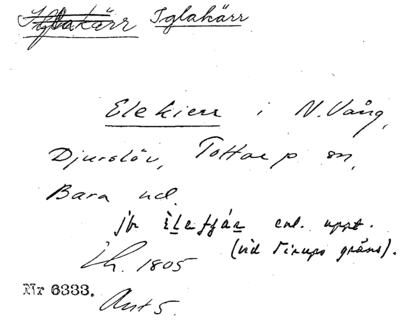 Iglakärr Iglakärr
Elekierr i N. Vång,
Djurslöv, Tottarp sn,
Bara hd.
jfr enl. uppt.
(vid Tirups gräns).
Lh. 1805
Nr 6333.
Ant 5.